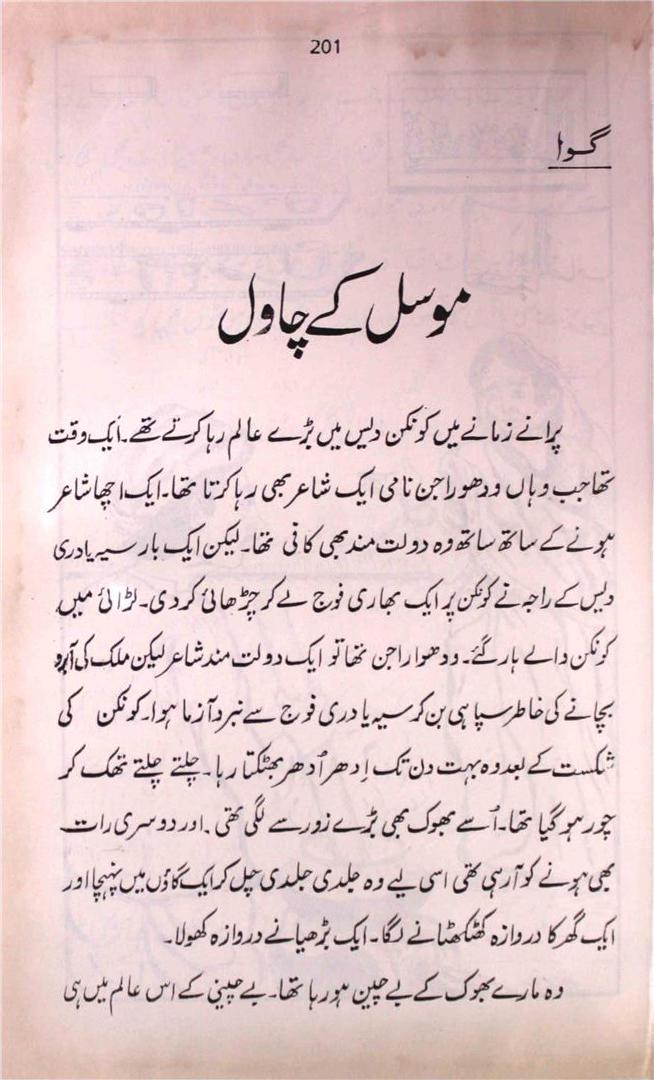 201
گوا
موسل کے چاول
پرانے زمانے میں کونکن دیس میں بڑے عالم رہا کرتے تھے۔ ایک وقت
تھا جب وہاں ودھوراجن نامی ایک شاعر بھی رہا کرتا تھا۔ ایک اچھا شاعر
ہونے کے ساتھ ساتھ وہ دولت مند بھی کافی تھا۔ لیکن ایک بار سہیادری
دیس کے راجہ نے کونکن پر ایک بھاری فوج لے کر چڑھائی کر دی۔ لڑائی میں
کونکن والے ہار گئے۔ ودھوا راجن تھا تو ایک دولت مند شاعر لیکن ملک کی آبرو
بچانے کی خاطر سپاہی بن کر سہیادری فوج سے نبرد آزما ہوا۔ کونکن کی
شکست کے بعد وہ بہت دن تک اِدھر اُدھر بھٹکتا رہا۔ چلتے چلتے تھک کر
چور ہو گیا تھا۔ اُسے بھوک بھی بڑے زور سے لگی تھی۔ اور دوسری رات
بھی ہونے کو آ رہی تھی اسی لیے وہ جلدی جلدی چل کر ایک گاؤں میں پہنچا اور
ایک گھر کا دروازہ کھٹکھٹانے لگا۔ ایک بڑھیا نے دروازہ کھولا۔
وہ مارے بھوک کے بے چین ہو رہا تھا۔ بے چینی کے اس عالم میں ہی